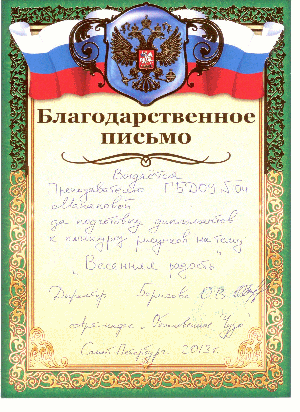 Благодарственное
письмо
Выдается
Преподавателю ГБДОУ
за подготовку дипломантов
к конкурсу рисунков на тему
„Весенняя радость"
Директор Борисова О.В.
Санкт-Петербург. 2013г.